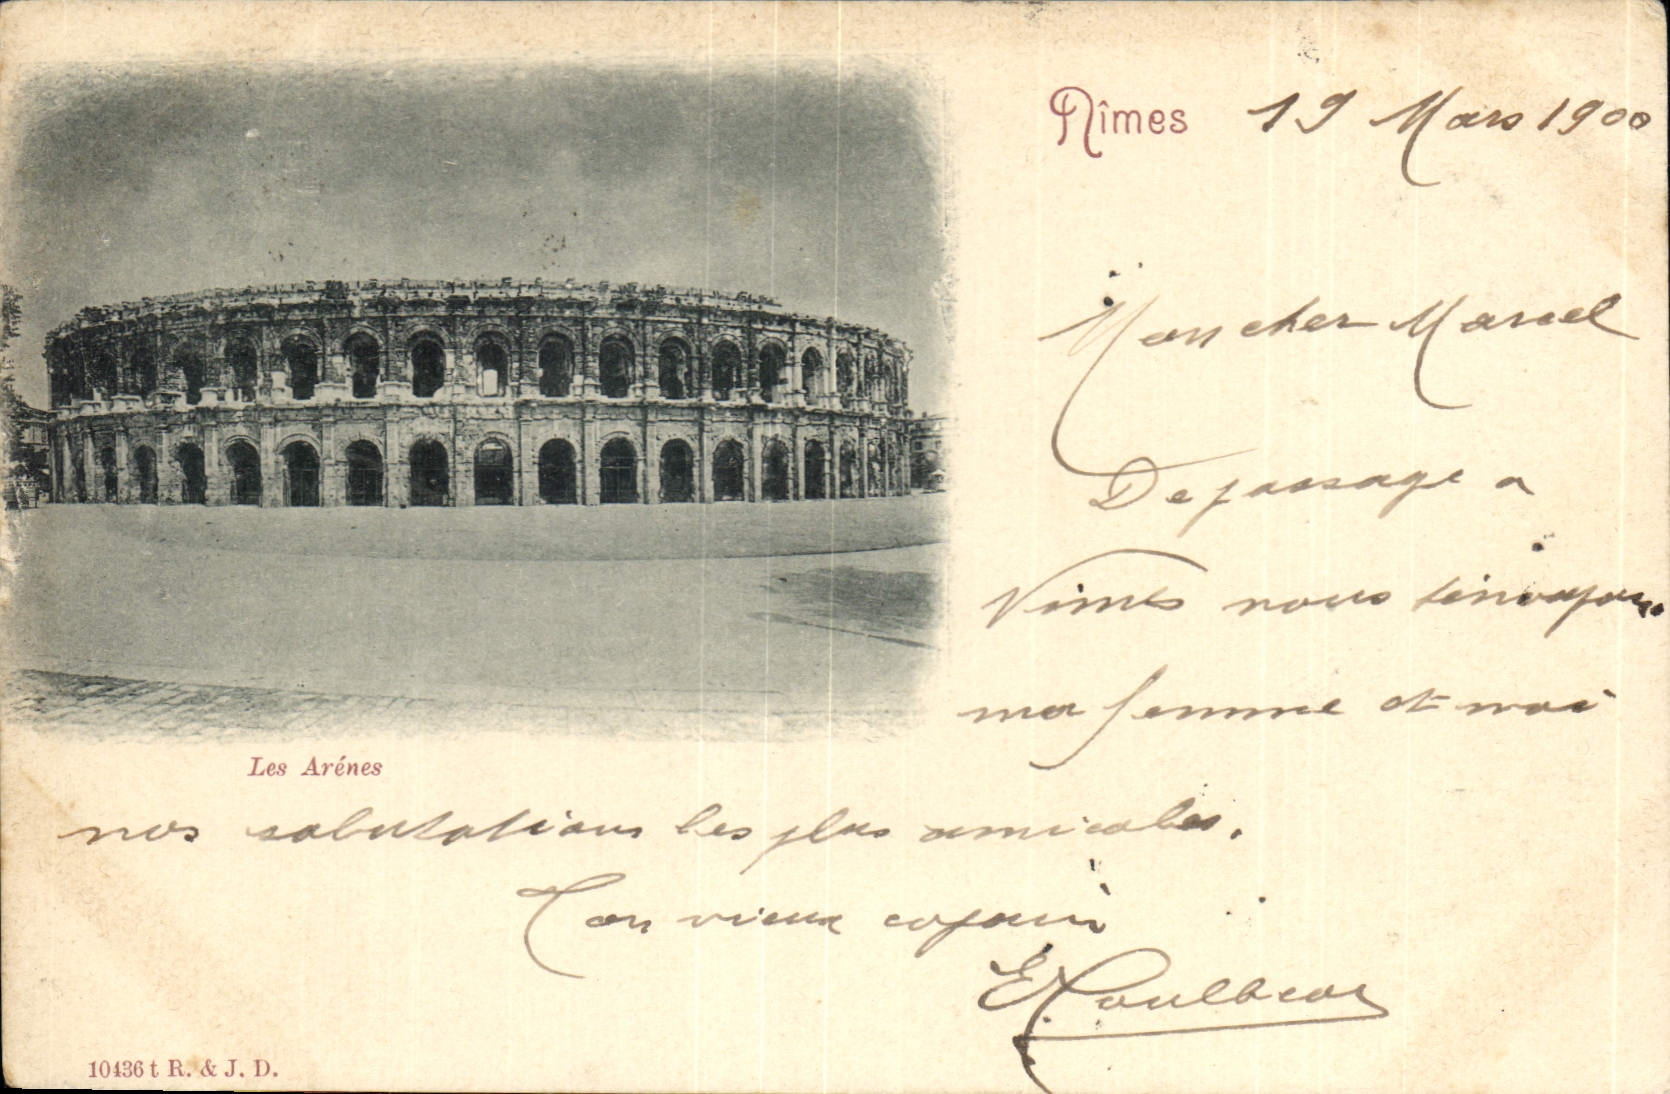 Nîmes 19 Mars 1900
Mon cher Marcel
De passage a
Nimes nous t'envoyons
ma femme et moi
Les Arénes
nos salutations les plus amicales.
Ton vieux copain
10436 t R. & J. D.